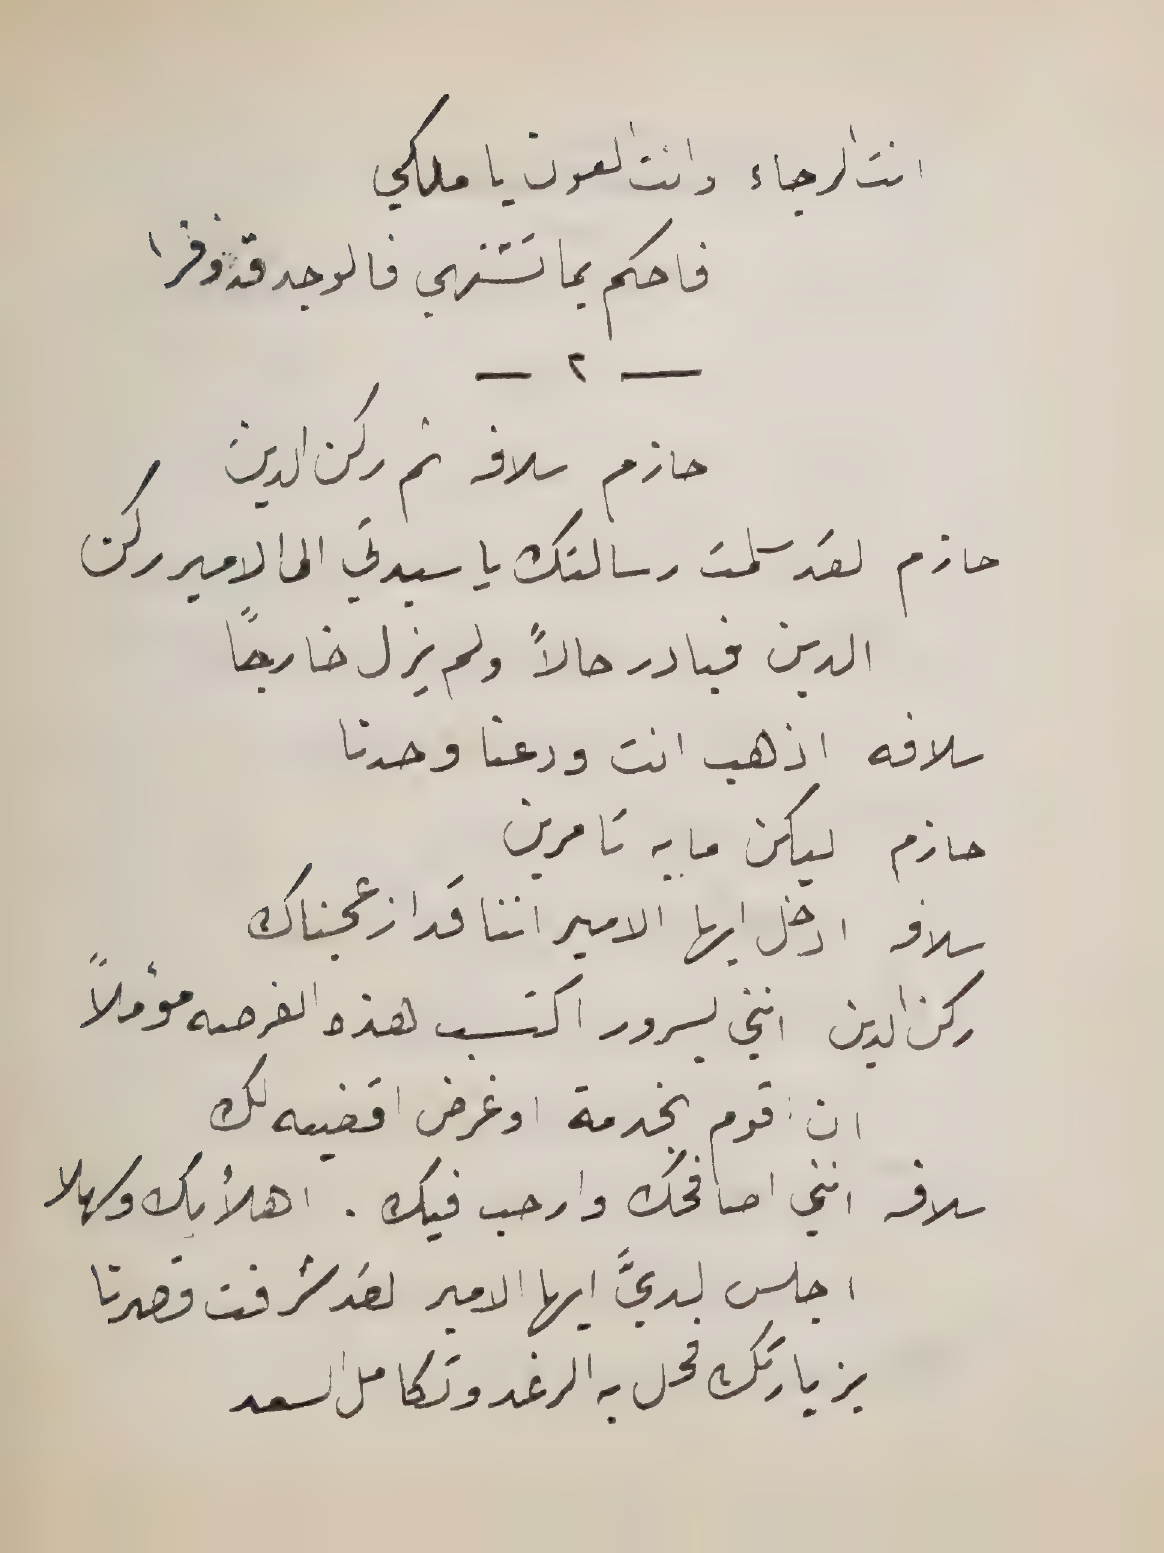 انت الرجاء وانت العون يا ملكي
فاحكم بما تشتهي فالوجد قد وفرا
— ٢ —
حازم سلافه ثم ركن الدين
حازم لقد سلمت رسالتك يا سيدتي الى الامير ركن
الدين فبادر حالاً ولم يزل خارجاً
سلافه اذهب انت ودعنا وحدنا
حازم ليكن ما به تامرين
سلافه ادخل ايها الامير اننا قد ازعجناك
ركن الدين انني بسرور اكتسب هذه الفرصه مؤملاً
ان اقوم بخدمة او غرض اقضيه لك
سلافه انني اصافحك وارحب فيك . اهلاً بك وسهلا
اجلس لديَّ ايها الامير لقد شرفت قصرنا
بزيارتك فحل به الرغد وتكامل السعد